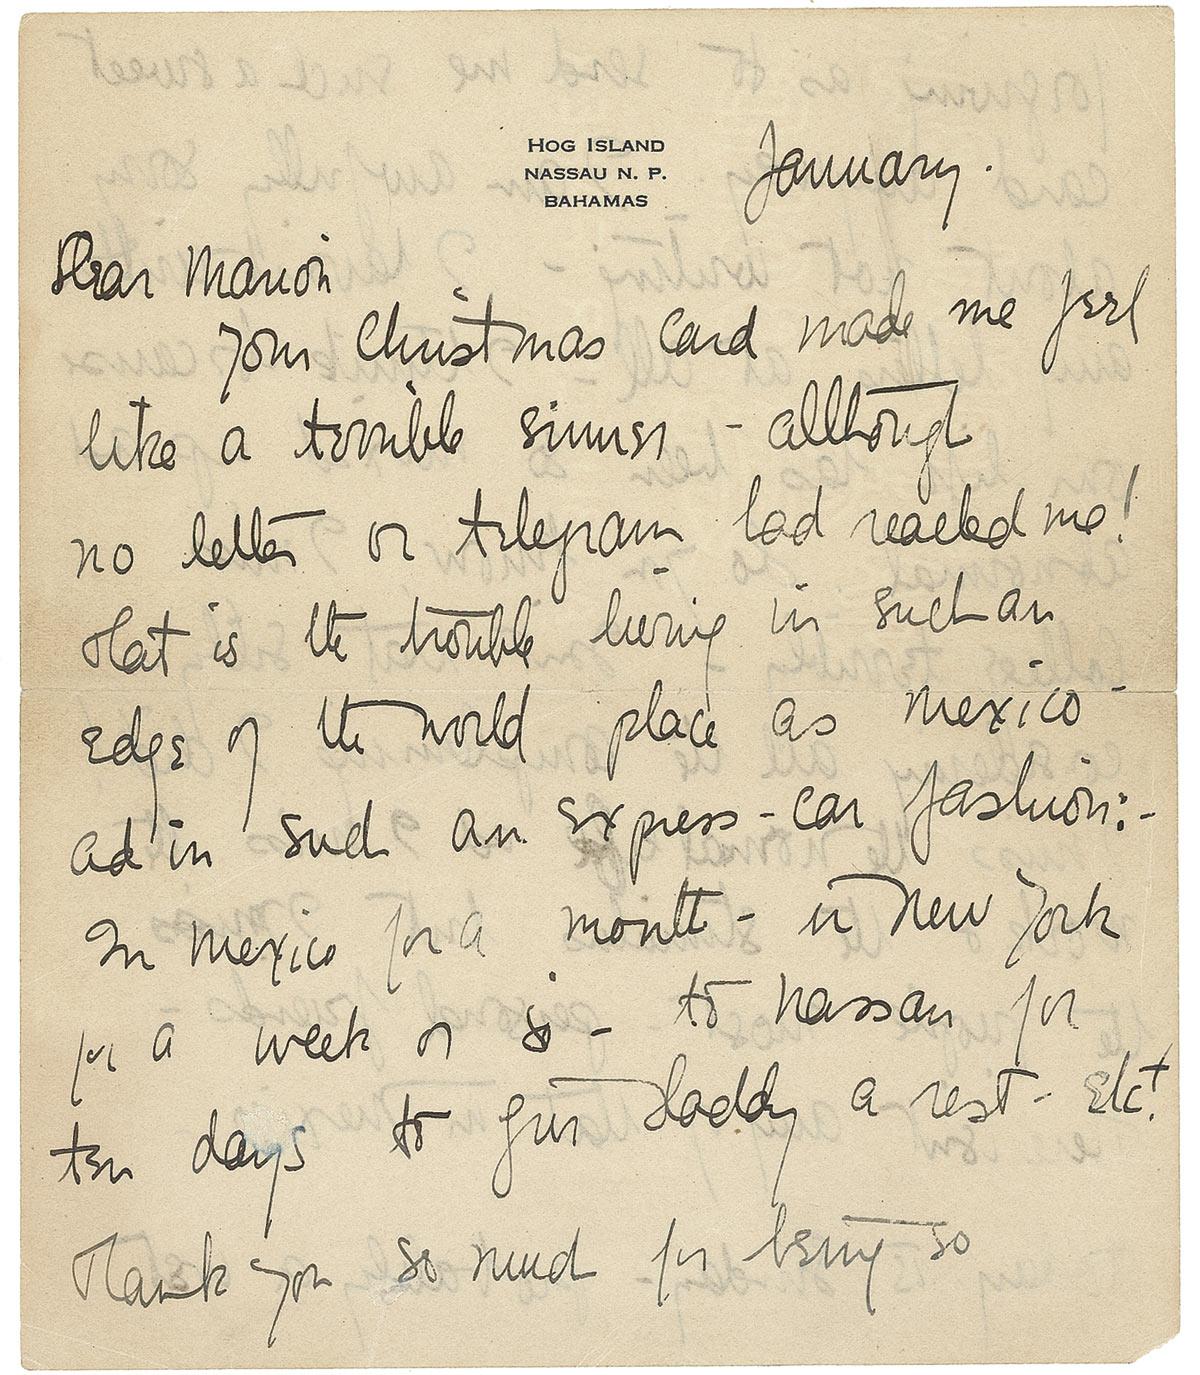 HOG ISLAND
NASSAU N. P.
BAHAMAS
January.
Dear Marion
Your Christmas card made me feel
like a terrible sinner - although
no letter or telegram had reached me!
That is the trouble living in such an
edge of the world place as Mexico -
ad in such an express-car fashion:-
In Mexico for a month - in New York
for a week or so - to Nassau for
ten days to give Daddy a rest - etc!
Thank you so much for being so